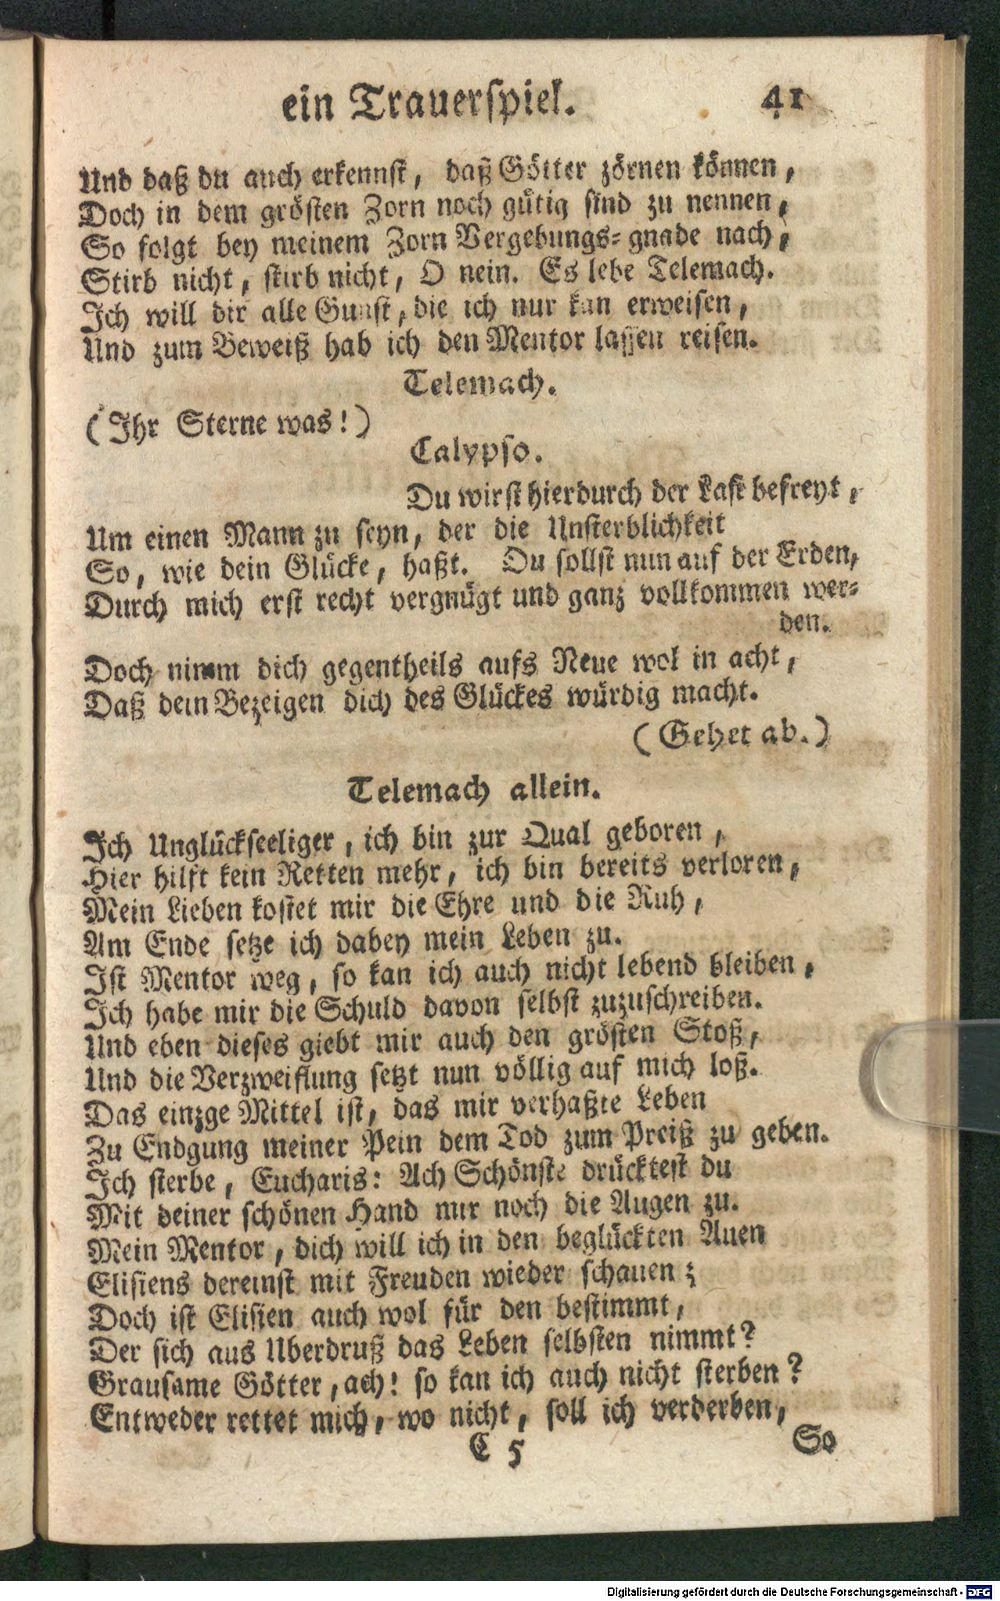 ein Trauerspiel. 41
Und daß du auch erkennst, daß Götter zörnen können,
Doch in dem grösten Zorn noch gütig sind zu nennen,
So folgt bey meinem Zorn Vergebungs-gnade nach,
Stirb nicht, stirb nicht, O nein. Es lebe Telemach.
Ich will dir alle Gunst, die ich nur kan erweisen,
Und zum Beweiß hab ich den Mentor lassen reisen.
Telemach.
(Ihr Sterne was!)
Calypso.
Du wirst hierdurch der Last befreyt,
Um einen Mann zu seyn, der die Unsterblichkeit
So, wie dein Glücke, haßt. Du sollst nun auf der Erden,
Durch mich erst recht vergnügt und ganz vollkommen wer-
den.
Doch nimm dich gegentheils aufs Neue wol in acht,
Daß dein Bezeigen dich des Glückes würdig macht.
(Gehet ab.)
Telemach allein.
Ich Unglückseeliger, ich bin zur Qual geboren,
Hier hilft kein Retten mehr, ich bin bereits verloren,
Mein Lieben kostet mir die Ehre und die Ruh,
Am Ende setze ich dabey mein Leben zu.
Ist Mentor weg, so kan ich auch nicht lebend bleiben,
Ich habe mir die Schuld davon selbst zuzuschreiben.
Und eben dieses giebt mir auch den grösten Stoß,
Und die Verzweiflung setzt nun völlig auf mich loß.
Das einzge Mittel ist, das mir verhaßte Leben
Zu Endgung meiner Pein dem Tod zum Preiß zu geben.
Ich sterbe, Eucharis: Ach Schönste drücktest du
Mit deiner schönen Hand mir noch die Augen zu.
Mein Mentor, dich will ich in den beglückten Auen
Elisiens dereinst mit Freuden wieder schauen;
Doch ist Elisien auch wol für den bestimmt,
Der sich aus Uberdruß das Leben selbsten nimmt?
Grausame Götter, ach! so kan ich auch nicht sterben?
Entweder rettet mich, wo nicht, soll ich verderben,
C 5 So
Digitalisierung gefördert durch die Deutsche Forschungsgemeinschaft - DFG